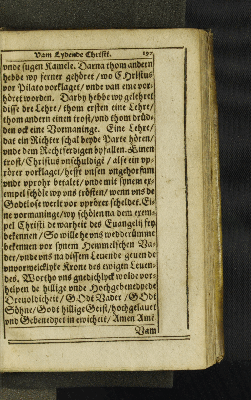 Vam Lydende Christi. 197
vnde sugen Kamele. Darna thom andern
hebbe wy ferner gehöret / wo CHristus
vor Pilato vorklaget / vnde van eme vor-
höret worden. Darby hebbe wy gelehret
disse dre Lehre / thom ersten eine Lehre /
thom andern einen trost / vnd thom drüd-
den ock eine Vormaninge. Eine Lehre /
dat ein Richter schal beyde Parte hören /
vnde dem Rechtferdigen byfallen. Einen
trost / Christus vnschüldige / alse ein vp-
rörer vorklaget / hefft vnsen vngehorsam
vnde vprohr betalet / vnde mit synem ex-
empel schole wy vns trösten / wenn vns de
Godtlose werlt vor vprörer scheldet. Ei-
ne vormaninge / wy schölen na dem exem-
pel Christi de warheit des Euangelij fry
bekennen / So wille he vns wedderümme
bekennen vor synem Hemmelschen Va-
der / vnde vns na dissem Leuende geuen de
vnvorwelcklyke Krone des ewigen Leuen-
des. Wortho vns gnedichlyck wolde vor-
helpen de hillige vnde Hochgebenedyede
Dreuoldicheit / GOdt Vader / GOdt
Söhne / Godt hillige Geist / hochgelauet
vnd Gebenedyet in ewicheit / Amen Amē
Vam